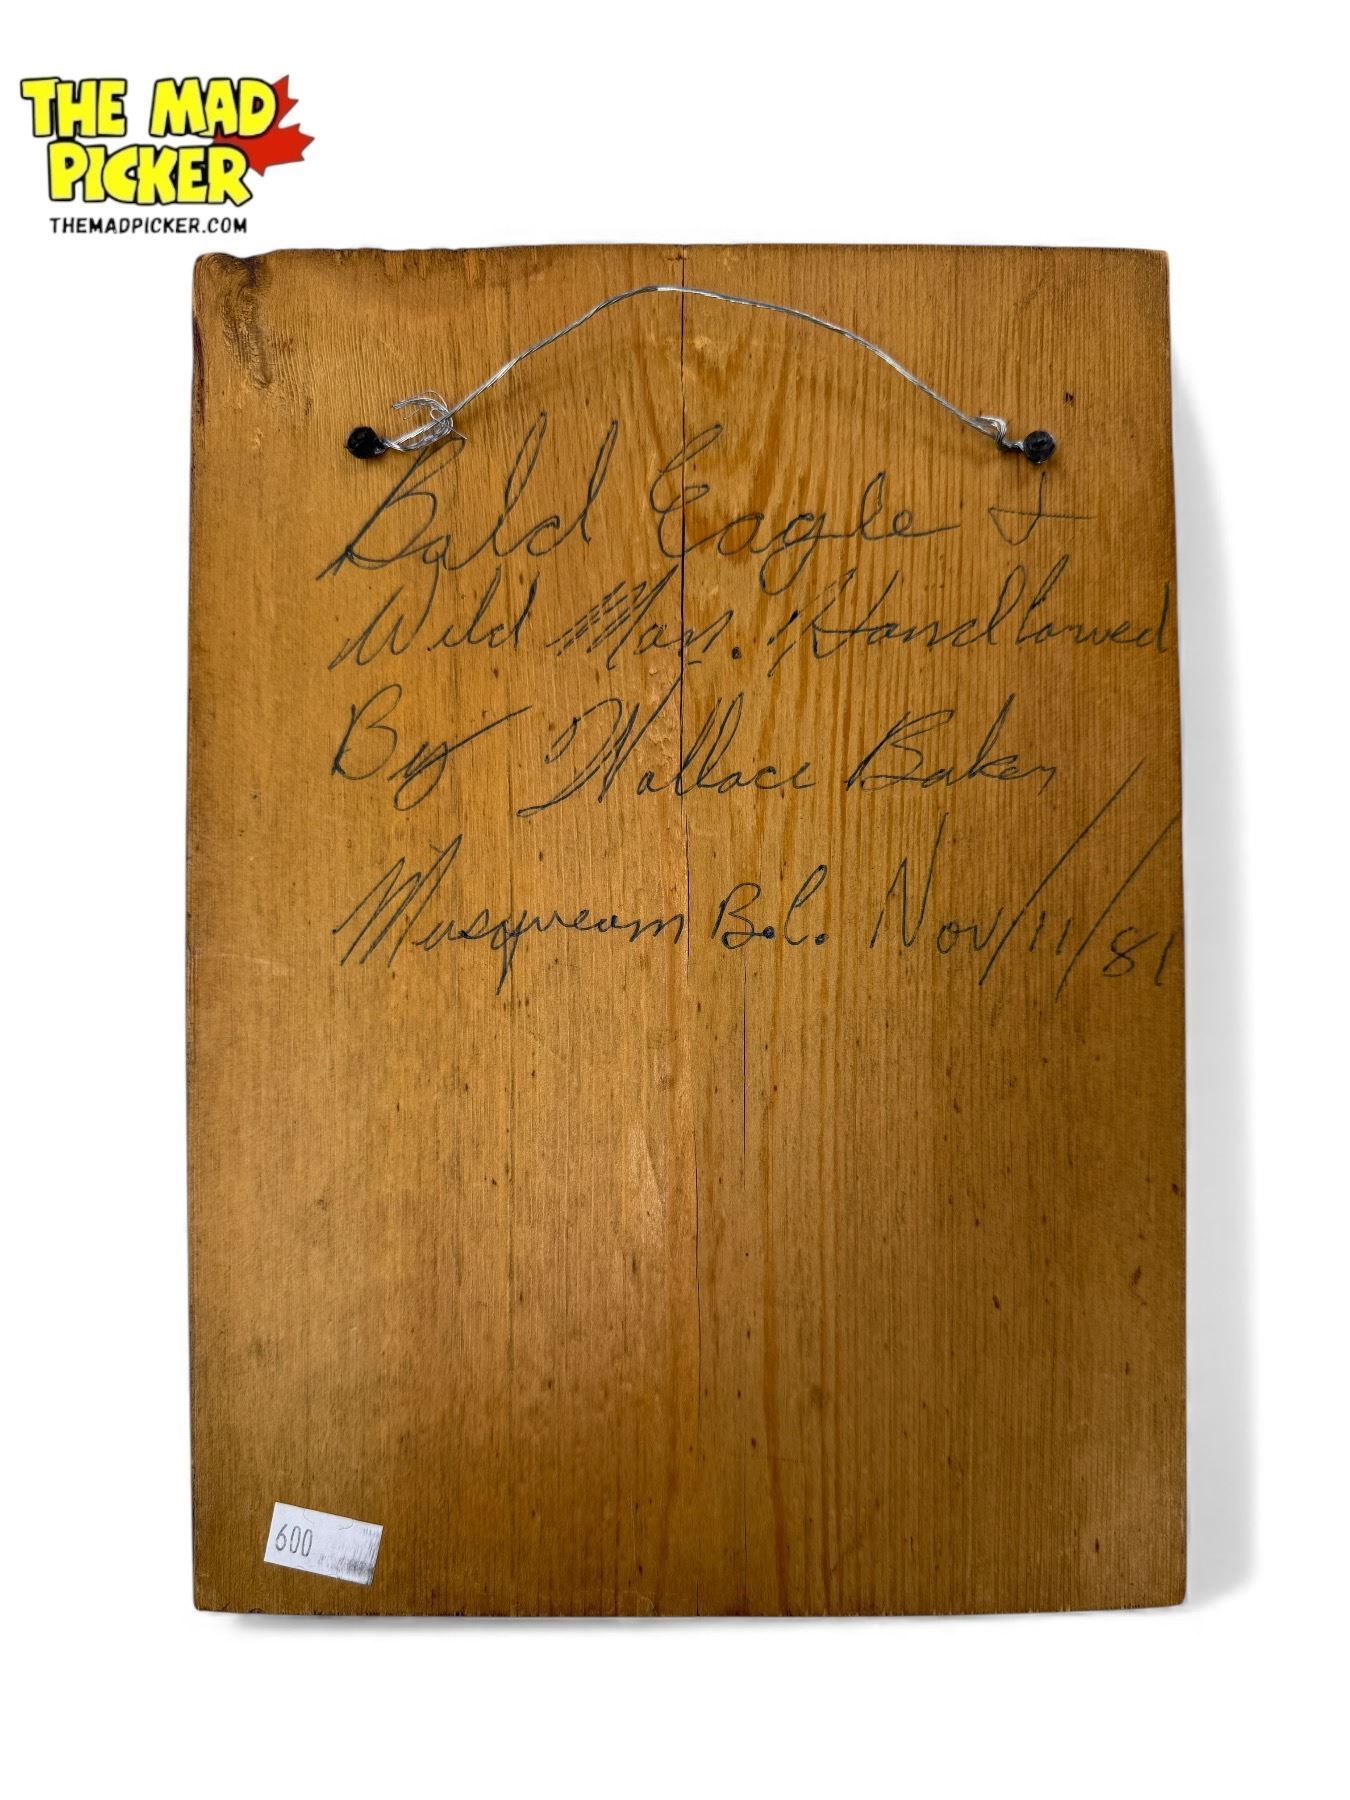 THE MAD
PICKER
THEMADPICKER.COM
Bald Eagle +
Wild Man. Handcarved
By Wallace Baker
Musqueam B.C. Nov/11/81
600